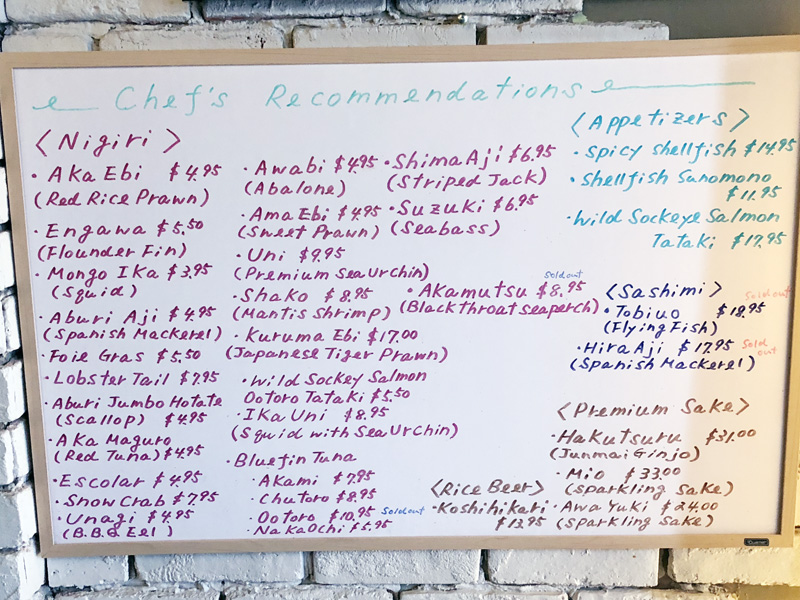 Chef's Recommendations
<Nigiri>
• Aka Ebi $4.95
(Red Rice Prawn)
• Engawa $5.50
(Flounder Fin)
• Mongo Ika $3.95
(Squid)
• Aburi Aji $4.95
(Spanish Mackerel)
• Foie Gras $5.50
• Lobster Tail $7.95
• Aburi Jumbo Hotate
(Scallop) $4.95
• Aka Maguro
(Red Tuna) $4.95
• Escolar $4.95
• Snow Crab $7.95
• Unagi $4.95
(B.B.Q Eel)
• Awabi $4.95
(Abalone)
• Ama Ebi $4.95
(Sweet Prawn)
• Uni $9.95
(Premium Sea Urchin)
• Shako $8.95
(Mantis Shrimp)
• Kuruma Ebi $17.00
(Japanese Tiger Prawn)
• Wild Sockey Salmon
Ootoro Tataki $5.50
• Ika Uni $8.95
(Squid with Sea Urchin)
• Bluefin Tuna
• Akami $7.95
• Chutoro $8.95
• Ootoro $10.95 Sold out
• Nakaochi $5.95
• Shima Aji $6.95
(Striped Jack)
• Suzuki $6.95
(Seabass)
Sold out
• Akamutsu $8.95
(Blackthroat seaperch)
<Rice Beer>
• Koshihikari
$13.95
<Appetizers>
• Spicy Shellfish $14.95
• Shellfish Sunomono
$11.95
• Wild Sockeye Salmon
Tataki $17.95
<Sashimi> Sold out
• Tobiuo $18.95
(Flying Fish)
• Hira Aji $17.95 Sold out
(Spanish Mackerel)
<Premium Sake>
• Hakutsuru $31.00
(Junmai Ginjo)
• Mio $33.00
(Sparkling Sake)
• Awa Yuki $24.00
(Sparkling Sake)